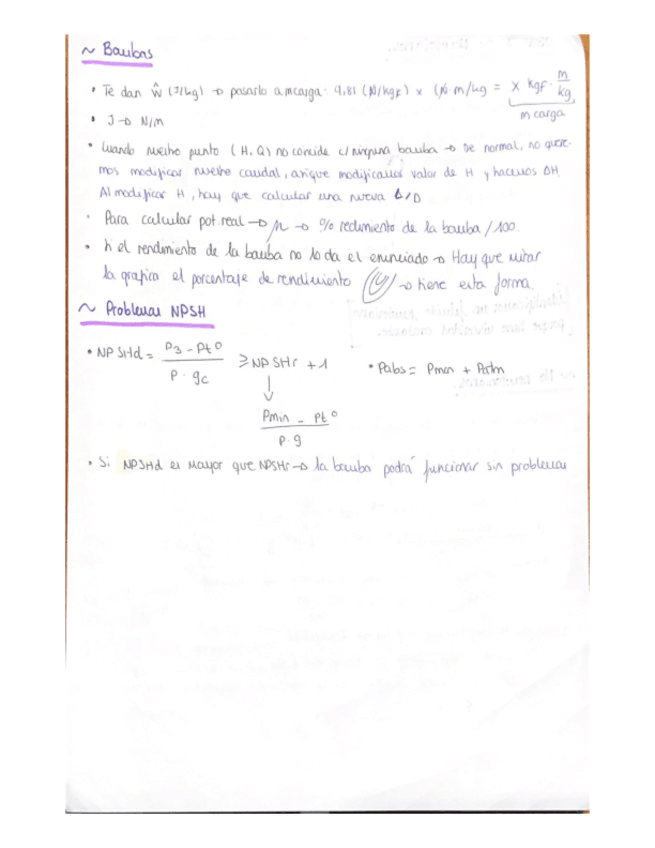 ~ Bombas
• Te dan ŵ (J/kg) → pasarlo a mcarga · 9.81 (N/kgf) × (N·m/kg = x kgf · m/kg
m carga
• J → N/m
• Cuando nuestro punto (H, Q) no coincide c/ ninguna bomba → De normal, no quere-
mos modificar nuestro caudal, asique modificamos valor de H y hacemos ΔH.
Al modificar H, hay que calcular una nueva L/D
• Para calcular pot. real → μ → % redimiento de la bomba / 100.
• Si el rendimiento de la bomba no lo da el enunciado → Hay que mirar
la grafica el porcentaje de rendimiento → tiene esta forma
~ Problemas NPSH
• NPSHd = P3 - Pt° / ρ · gc ≥ NPSHr + 1 • Pabs = Pman + Patm
↓
Pmin - Pt° / ρ · g
• Si NPSHd es mayor que NPSHr → la bomba podrá funcionar sin problemas